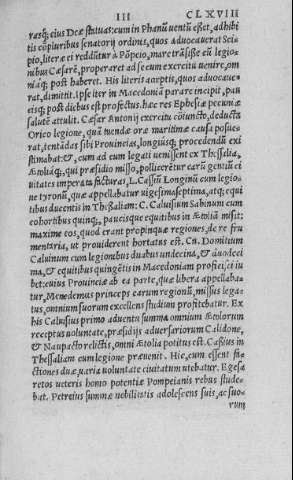 III CLXVIII
rasq; eius Deæ statuas: cum in Phanũ uentũ esset, adhibi
tis cõpluribus senatorij ordinis, quos aduocauerat Sci-
pio, literæ ei reddũtur à Põpeio, mare trãsisse eũ legio-
nibus Cæsarẽ, properaret ad se cum exercitu uenire, om
niaq; post haberet. His literis acceptis, quos aduocaue-
rat, dimittit. Ipse iter in Macedoniã parare incipit, pau
cisq; post diebus est profectus. hæc res Ephesiæ pecuniæ
salutẽ attulit. Cæsar Antonij exercitu cõiuncto, deducta
Orico legione, quã tuendæ oræ maritimæ causa posue-
rat, tentãdas sibi Prouincias, longiusq; procedendũ exi
stimabat: &, cum ad eum legati uenissent ex Thessalia,
Aetoliaq;, qui præsidio misso, pollicerẽtur earũ gentiũ ci
uitates imperata facturas, L. Cassiũ Longinũ cum legio-
ne tyronũ, quæ appellabatur uigesimaseptima, atq; equi
tibus ducentis in Thessaliam: C. Caluisium Sabinum cum
cohortibus quinq;, paucisque equitibus in Aetoliã misit:
maxime eos, quod erant propinquæ regiones, de re fru
mentaria, ut prouiderent hortatus est. Cn. Domitium
Caluinum cum legionibus duabus undecima, & duodeci
ma, & equitibus quingẽtis in Macedoniam proficisci iu
bet: cuius Prouinciæ ab ea parte, quæ libera appellaba-
tur, Menedemus princeps earum regionũ, missus lega
tus, omnium suorum excellens studium profitebatur. Ex
his Caluisius primo aduentu summa omnium Aetolorum
receptus uoluntate, præsidijs aduersariorum Calidone,
& Naupacto relictis, omni Aetolia potitus est. Cassius in
Thessaliam cum legione peruenit. Hic, cum essent fa-
ctiones duæ, uaria uoluntate ciuitatum utebatur. Egesa
retos ueteris homo potentiæ Pompeianis rebus stude-
bat. Petreius summæ nobilitatis adolescens suis, ac suo-
rum